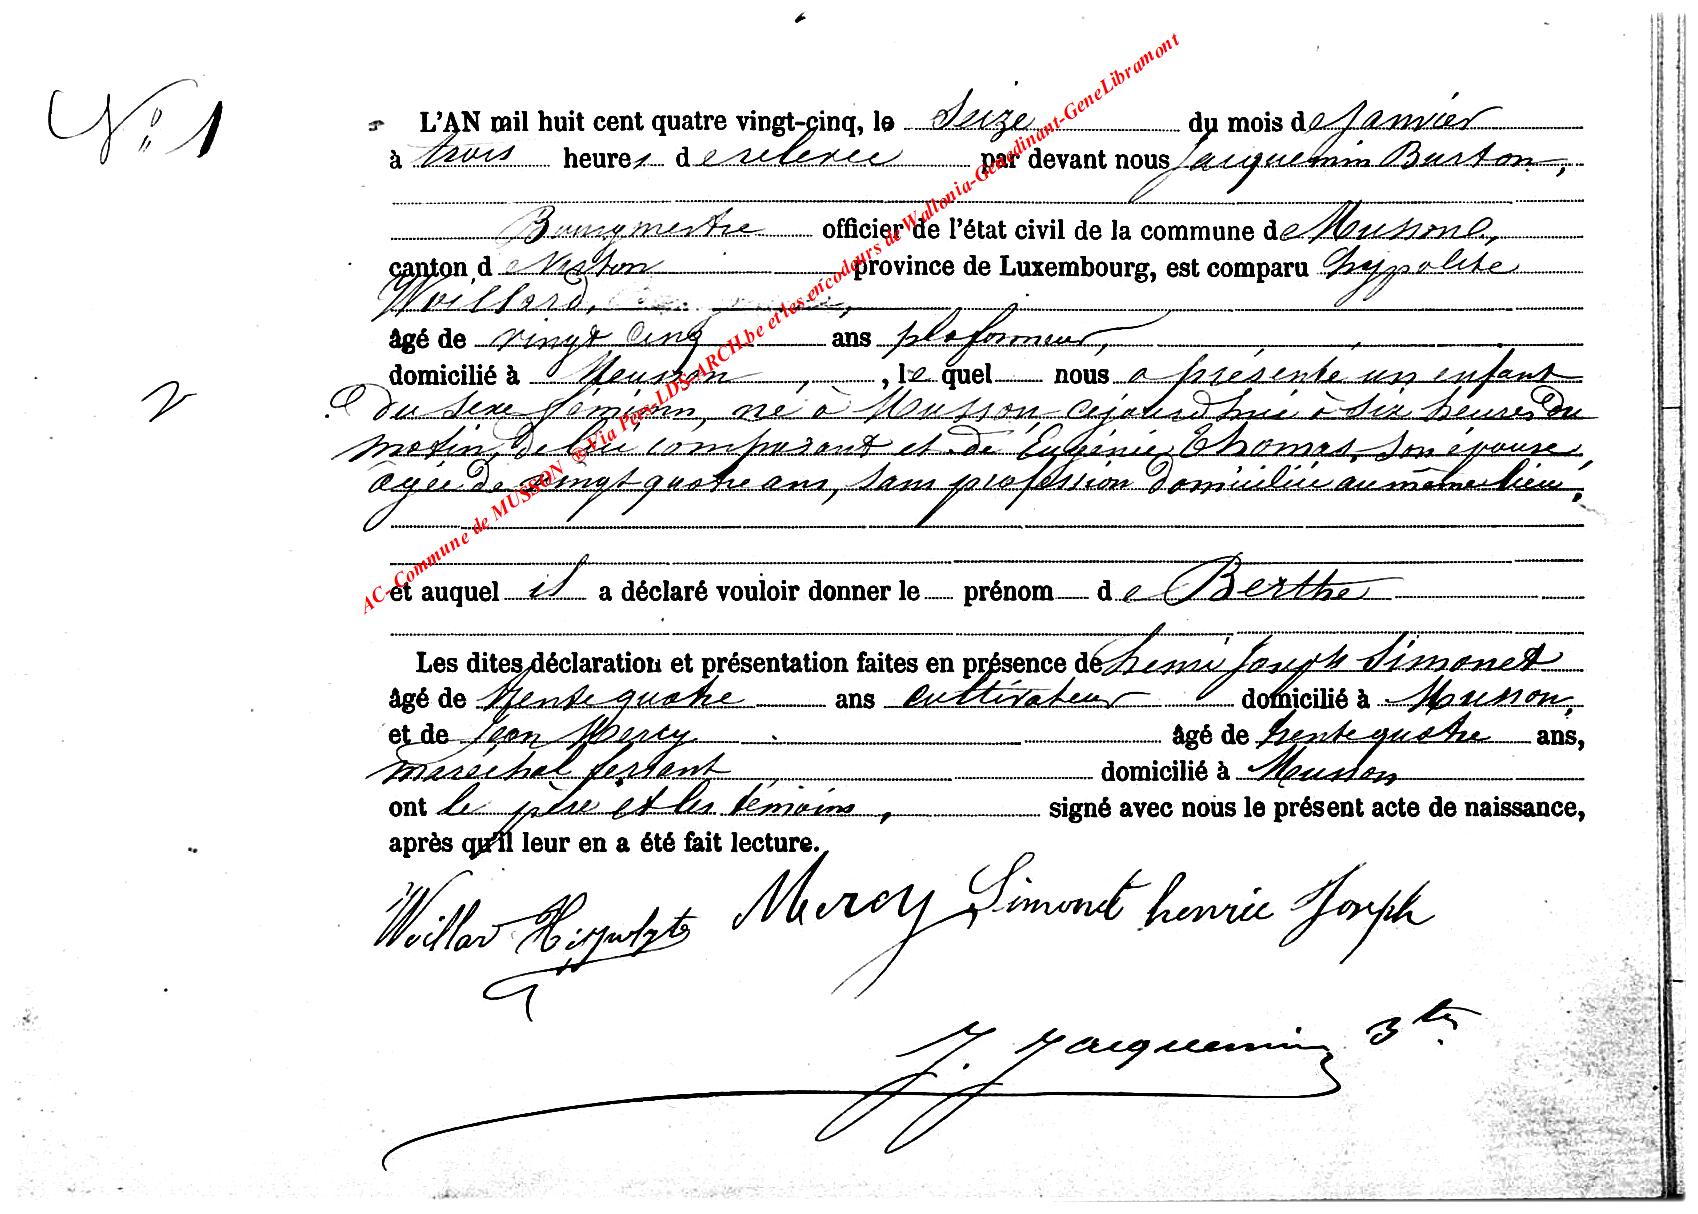 N° 1
L'AN mil huit cent quatre vingt-cinq, le Seize du mois de Janvier
à trois heures de relevée par devant nous Jacquemin Burton,
Bourgmestre officier de l'état civil de la commune de Musson,
canton de Virton province de Luxembourg, est comparu hypolite
Woillard,
âgé de vingt cinq ans plafonneur,
domicilié à Musson, , le quel nous a présenté un enfant
du sexe féminin, né à Musson, cejourd'hui à six heures du
matin, de lui comparant et de Eugénie Thomas, son épouse,
agée de vingt quatre ans, sans profession domiciliée au même lieu,
et auquel il a déclaré vouloir donner le prénom de Berthe
Les dites déclaration et présentation faites en présence de henri Joseph Simonet
âgé de trente quatre ans cultivateur domicilié à Musson,
et de Jean Mercy âgé de trente quatre ans,
maréchal ferrant domicilié à Musson
ont le père et les témoins, signé avec nous le présent acte de naissance,
après qu'il leur en a été fait lecture.
Woillar Hippolyte Mercy Simonet henrie Joseph
J. Jacquemin Btn
AC-Commune de MUSSON ®Via Pers-LDS-ARCH.be et les encodeurs de Wallonia-Genedinant-GeneLibramont